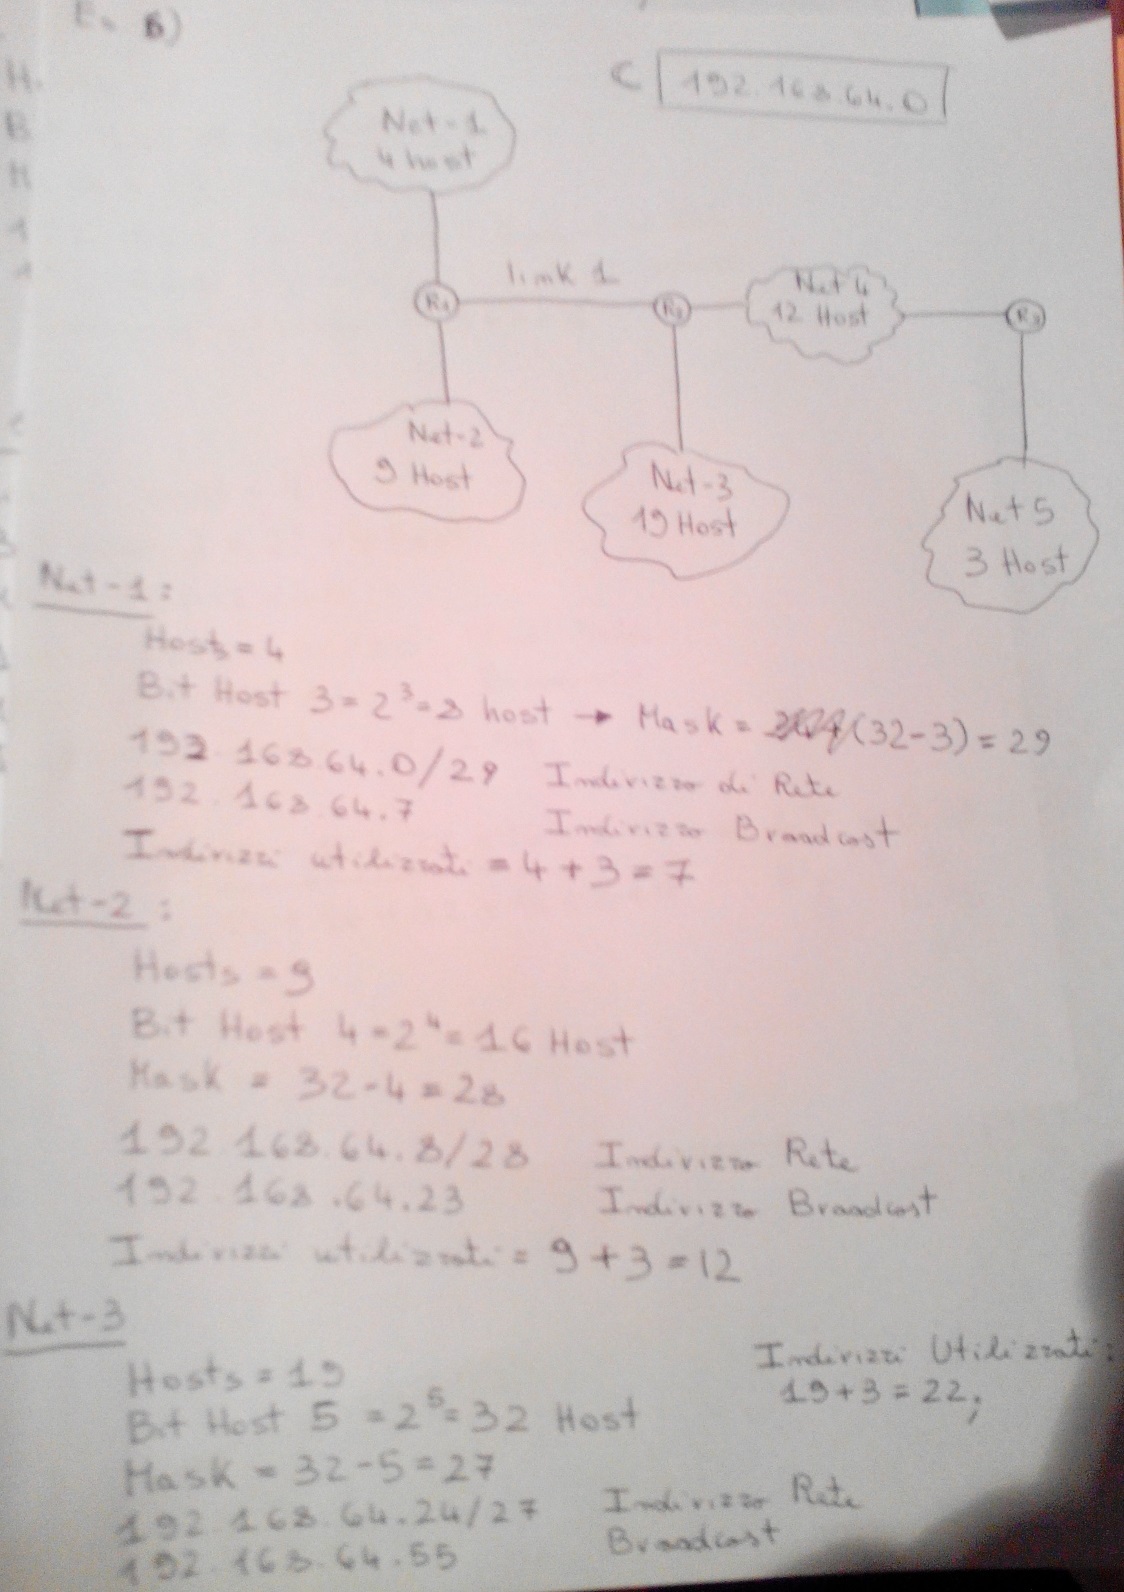 Es 6)
C 192.168.64.0
Net-1
4 host
link 1
R1
R2
Net 4
12 Host
R3
Net-2
9 Host
Net-3
19 Host
Net 5
3 Host
Net-1:
Hosts = 4
Bit Host 3 = 2³ = 8 host → Mask = (32-3) = 29
192.168.64.0/29 Indirizzo di Rete
192.168.64.7 Indirizzo Broadcast
Indirizzi utilizzati = 4 + 3 = 7
Net-2:
Hosts = 9
Bit Host 4 = 2⁴ = 16 Host
Mask = 32-4 = 28
192.168.64.8/28 Indirizzo Rete
192.168.64.23 Indirizzo Broadcast
Indirizzi utilizzati = 9 + 3 = 12
Net-3
Hosts = 19
Indirizzi Utilizzati:
19+3 = 22;
Bit Host 5 = 2⁵ = 32 Host
Mask = 32-5 = 27
192.168.64.24/27 Indirizzo Rete
192.168.64.55 Broadcast